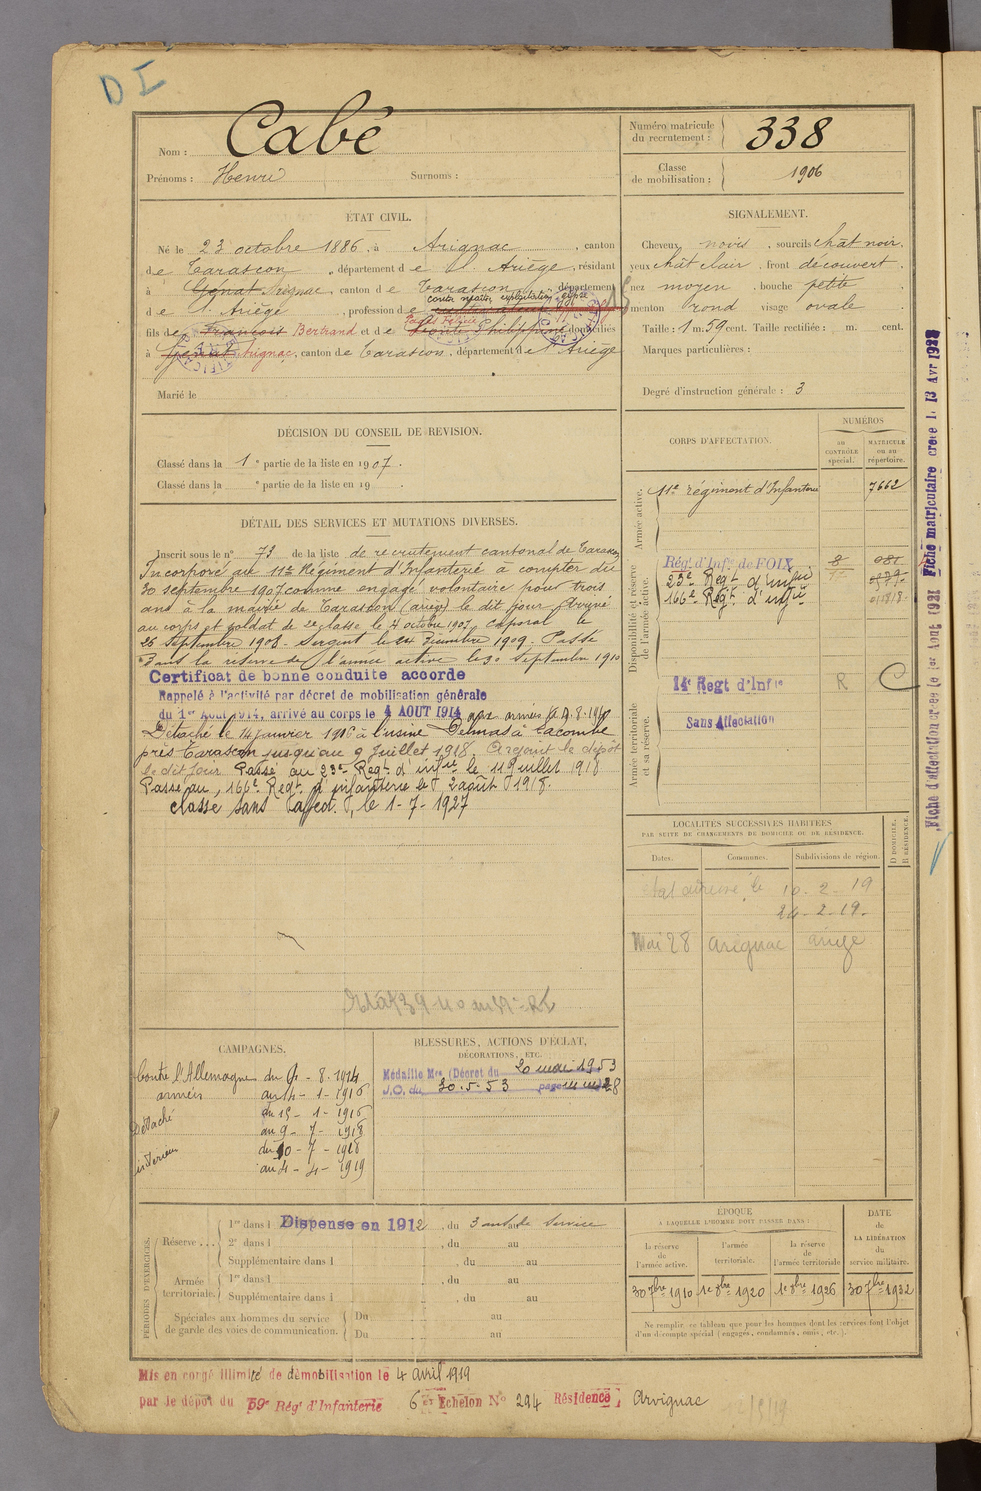 D I
Nom : Cabé
Prénoms : Henri Surnoms :
Numéro matricule du recrutement : 338
Classe de mobilisation : 1906
ÉTAT CIVIL.
Né le 23 octobre 1886, à Arignac, canton
de Tarascon, département de l'Ariège, résidant
à Genat Arignac, canton de Tarascon, département
de l'Ariège, profession de contre maître exploitation
fils de François Bertrand et de Philippine domiciliés
à Genat Arignac, canton de Tarascon, département de l'Ariège
Marié le
SIGNALEMENT.
Cheveux noirs, sourcils chât noir.
yeux chât clair, front découvert,
nez moyen, bouche petite,
menton rond visage ovale
Taille : 1 m. 59 cent. Taille rectifiée : m. cent.
Marques particulières :
Degré d'instruction générale : 3
DÉCISION DU CONSEIL DE REVISION.
Classé dans la 1e partie de la liste en 1907.
Classé dans la e partie de la liste en 19
DÉTAIL DES SERVICES ET MUTATIONS DIVERSES.
Inscrit sous le n° 73 de la liste de recrutement cantonal de Tarascon
Incorporé au 11e Régiment d'Infanterie à compter du
30 septembre 1907 comme engagé volontaire pour trois
ans à la mairie de Tarascon (ariège) le dit jour. Arrivé
au corps et soldat de 2e classe le 4 octobre 1907. Caporal le
26 Septembre 1908. Sergent le 24 Décembre 1909. Passé
dans la réserve de l'armée active le 30 Septembre 1910
Certificat de bonne conduite accorde
Rappelé à l'activité par décret de mobilisation générale
du 1er Août 1914, arrivé au corps le 4 AOUT 1914 aux armées le
Détaché le 14 janvier 1916 à l'usine Delmas à Lacombe
près Tarascon jusqu'au 9 Juillet 1918. Rejoint le dépôt
le dit jour Passé au 23e Regt d'infie le 11 Juillet 1918
Passé au 166e Regt d'infanterie le 2 août 1918.
Classe sans affect., le 1-7-1927
CORPS D'AFFECTATION.
NUMÉROS
AU CONTRÔLE spécial.
MATRICULE ou au répertoire.
Armée active.
11e régiment d'Infanterie 7662
Disponibilité et réserve de l'armée active.
Régt d'Infie de FOIX 8
23e Regt d'infie
166e Regt d'infie
Armée territoriale et sa réserve.
14e Regt d'Infie R
Sans Affectation
C
LOCALITÉS SUCCESSIVES HABITÉES
PAR SUITE DE CHANGEMENTS DE DOMICILE OU DE RÉSIDENCE.
Dates. Communes. Subdivisions de région.
D DOMICILE. R RÉSIDENCE.
le 10-2-19
24-2-19-
Mai 28 Arignac ariège
CAMPAGNES.
Contre l'Allemagne du 4-8-1914
armées au 14-1-1916
Détaché du 15-1-1916
au 9-7-1918
intérieur du 10-7-1918
au 4-4-1919
BLESSURES, ACTIONS D'ÉCLAT,
DÉCORATIONS, ETC.
Médaille Mre (Décret du 20 mai 1953
J.O. du 30-5-53 page
PÉRIODES D'EXERCICES.
Réserve ... 1re dans l Dispense en 1912, du 3 ans de service
2e dans l , du au
Supplémentaire dans l , du au
Armée territoriale. 1re dans l , du au
Supplémentaire dans l , du au
Spéciales aux hommes du service de garde des voies de communication. Du au
Du au
ÉPOQUE
A LAQUELLE L'HOMME DOIT PASSER DANS :
la réserve de l'armée active. l'armée territoriale. la réserve de l'armée territoriale.
DATE de LA LIBÉRATION du service militaire.
30 7bre 1910 1e 8bre 1920 1e 8bre 1926 30 7bre 1932
Ne remplir ce tableau que pour les hommes dont les services font l'objet
d'un décompte spécial (engagés, condamnés, omis, etc.).
Mis en congé illimité de démobilisation le 4 avril 1919
par le dépôt du 59e Régt d'Infanterie 6e Echelon N° 294 Résidence : Arvignac